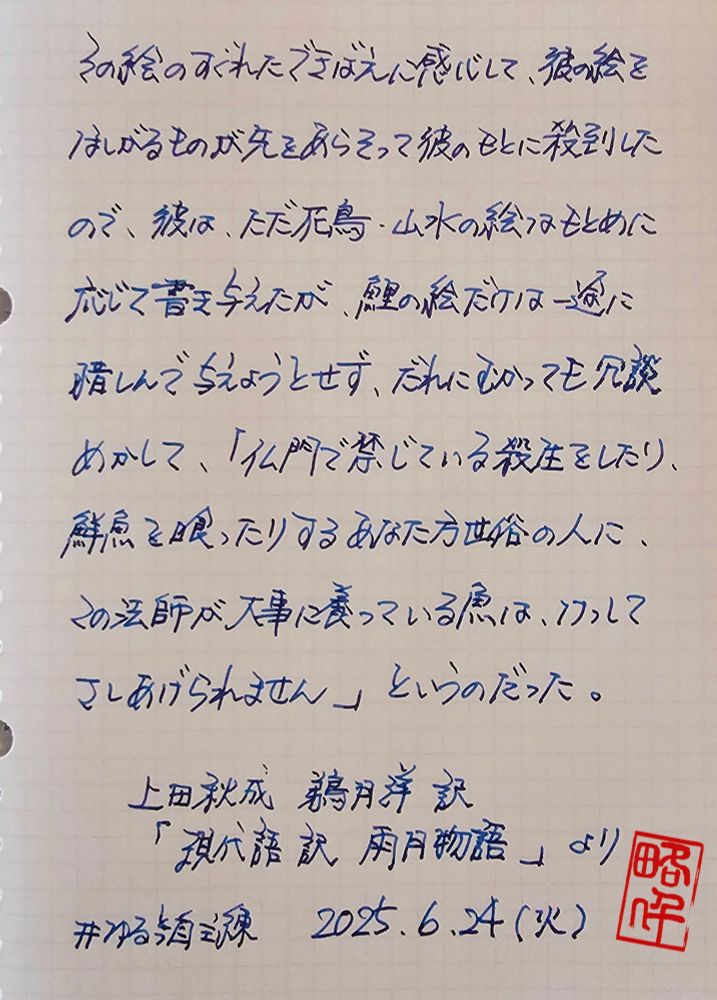 その絵のすぐれたできばえに感心して、彼の絵を
ほしがるものが先をあらそって彼のもとに殺到した
ので、彼は、ただ花鳥・山水の絵はもとめに
応じて書き与えたが、鯉の絵だけは一途に
惜しんで与えようとせず、だれにむかっても冗談
めかして、「仏門で禁じている殺生をしたり、
鮮魚を喰ったりするあなた方世俗の人に、
この法師が大事に養っている魚は、けっして
さしあげられません」というのだった。
上田秋成 鵜月洋 訳
「現代語訳 雨月物語」より
#ゆる字自主練 2025.6.24(火)